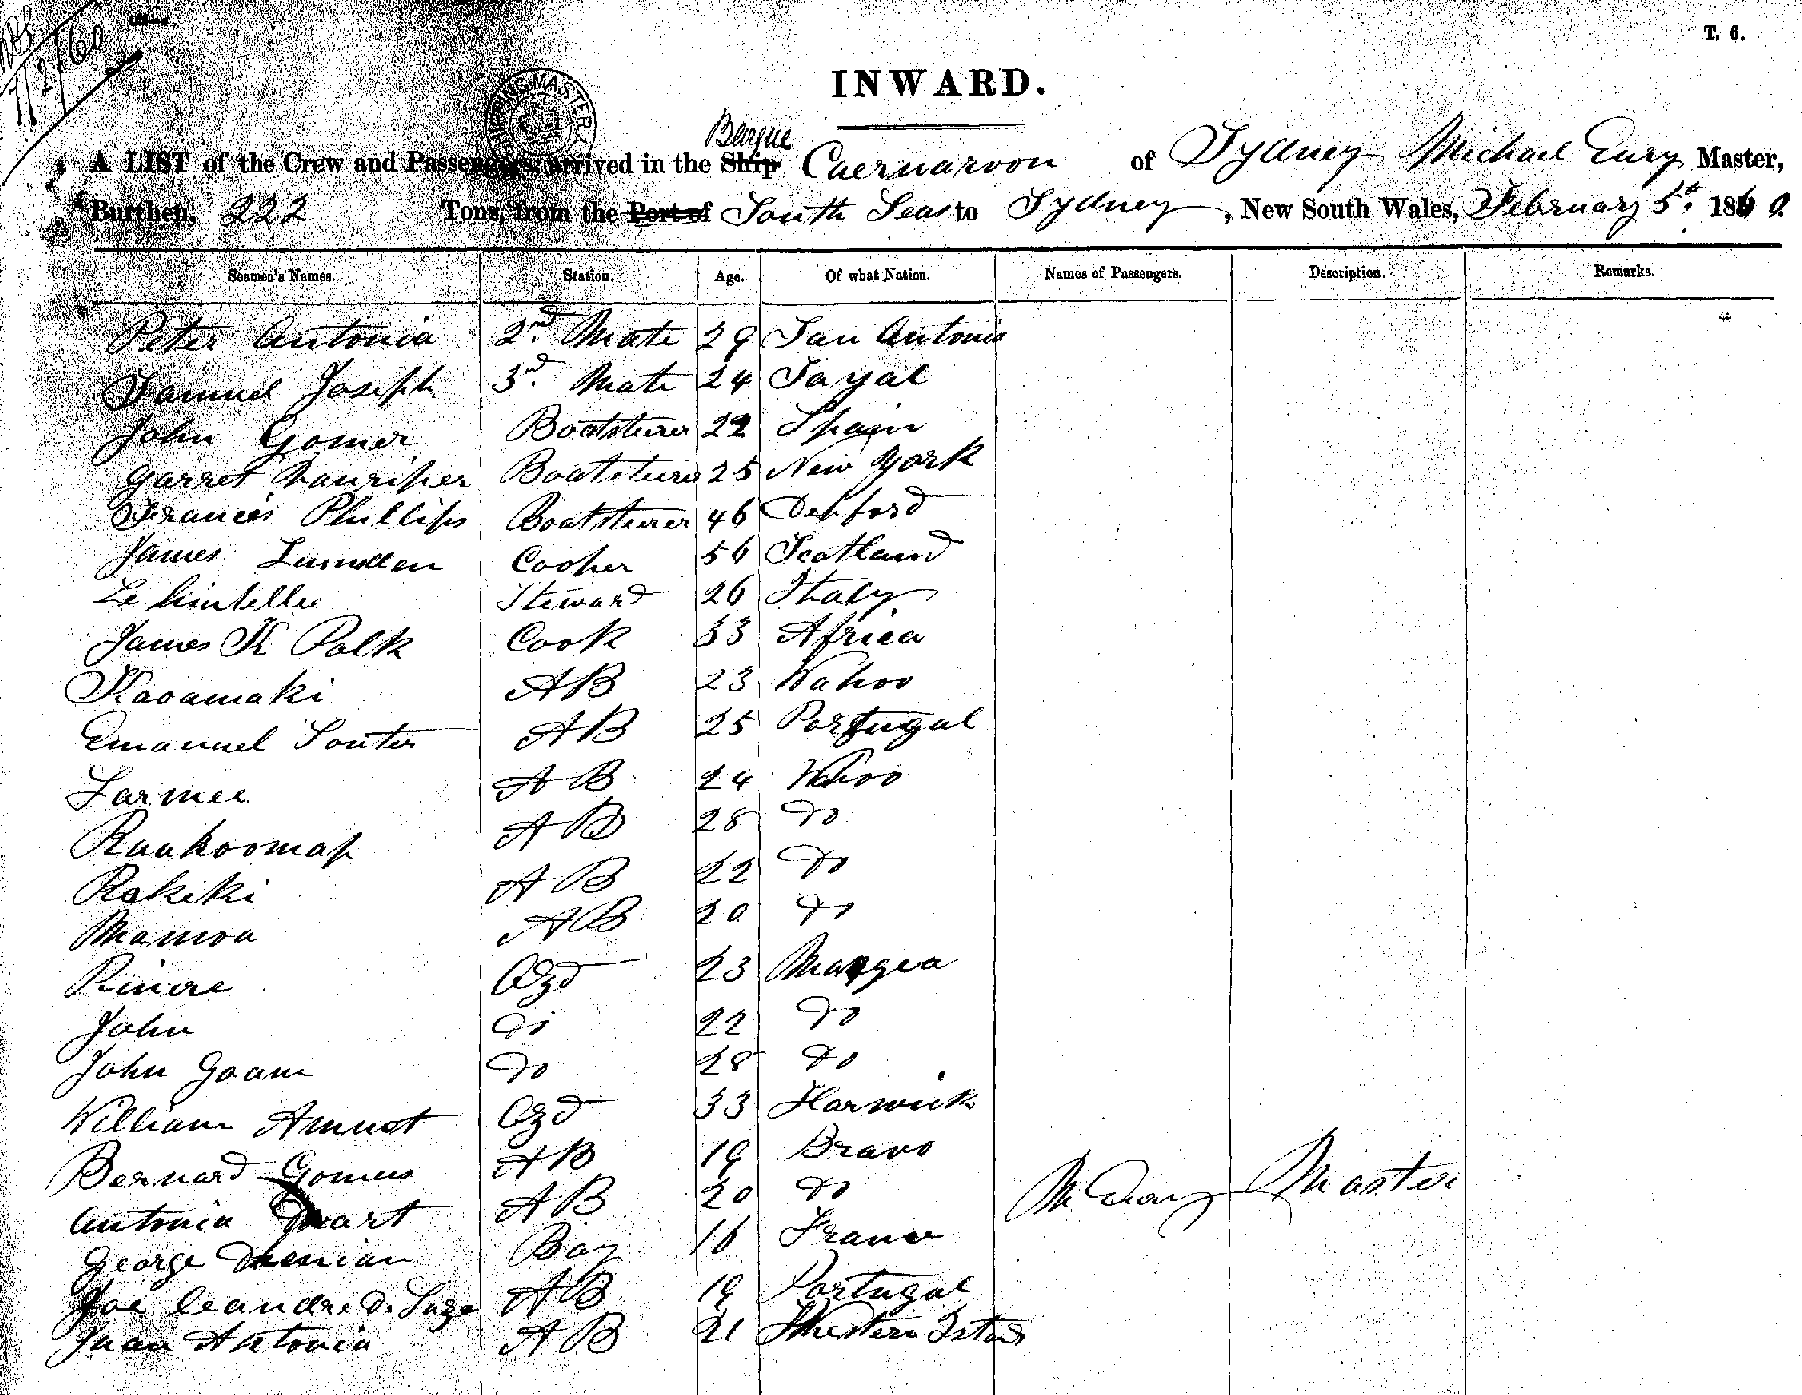 T. 6.
INWARD.
Barque
A LIST of the Crew and Passengers arrived in the Ship Caernarvon of Sydney Michael Eury Master,
Burthen, 222 Tons, from the Port of South Seas to Sydney, New South Wales, February 5th 1860
Seamen's Names. Station. Age. Of what Nation. Names of Passengers. Description. Remarks.
Peter Antonia 2nd Mate 29 San Antonio
Samuel Joseph 3d. Mate 24 Fayal
John Gomer Boatsteerer 22 Spain
Garret Vanriper Boatsteerer 25 New York
Francis Phillips Boatsteerer 46 Depford
James Lumsden Cooper 56 Scotland
Le Steward 26 Italy
James K Polk Cook 33 Africa
Kaoamaki AB 23 Wahoo
Emanuel Souter AB 25 Portugal
Larmee AB 24 Wahoo
Raukoomap AB 28 Do
Rakiki AB 22 Do
Mamoa AB 20 Do
Rinere Ord 23 Mangea
John Do 22 Do
John Goam Do 28 Do
William Amust Ord 33 Harwick
Bernard Gomes AB 19 Bravo
Antonia AB 20 Do
George Boy 16 France
Joe Leandre D. AB 19 Portugal
Juan Antonia AB 21 Western Islands
Master